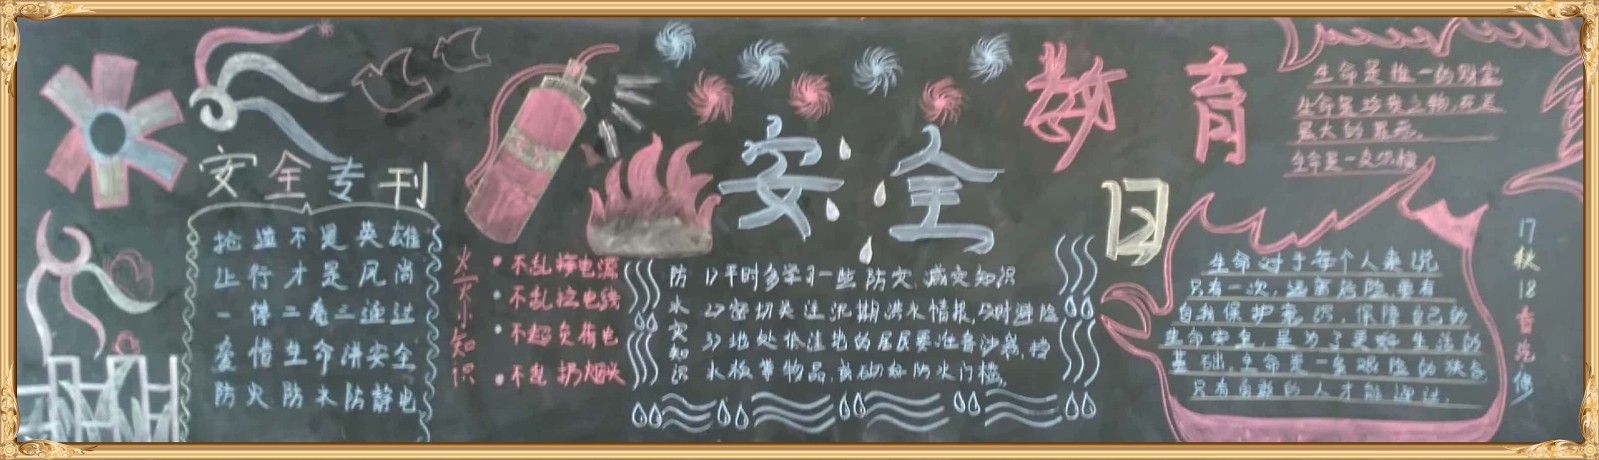 安全专刊
抢道不是英雄
让行才是风尚
一停二看三通过
爱惜生命讲安全
防火防水防静电
灭火小知识
不乱接电源
不乱拉电线
不超负荷电
不乱扔烟头
安全教育日
防水灾知识
1)平时多学习一些防灾、减灾知识
2)密切关注汛期洪水情报,及时避险
3)地处低洼地的居民要准备沙袋、挡
水板等物品,或砌好防水门槛。
生命是唯一的财富
生命是珍贵之物,死是
最大的罪恶。
生命是一支
生命对于每个人来说
只有一次,远离危险,要有
自我保护意识,保障自己的
生命安全,是为了更好生活的
基础,生命是一
只有勇敢的人才能
17秋18春汽修